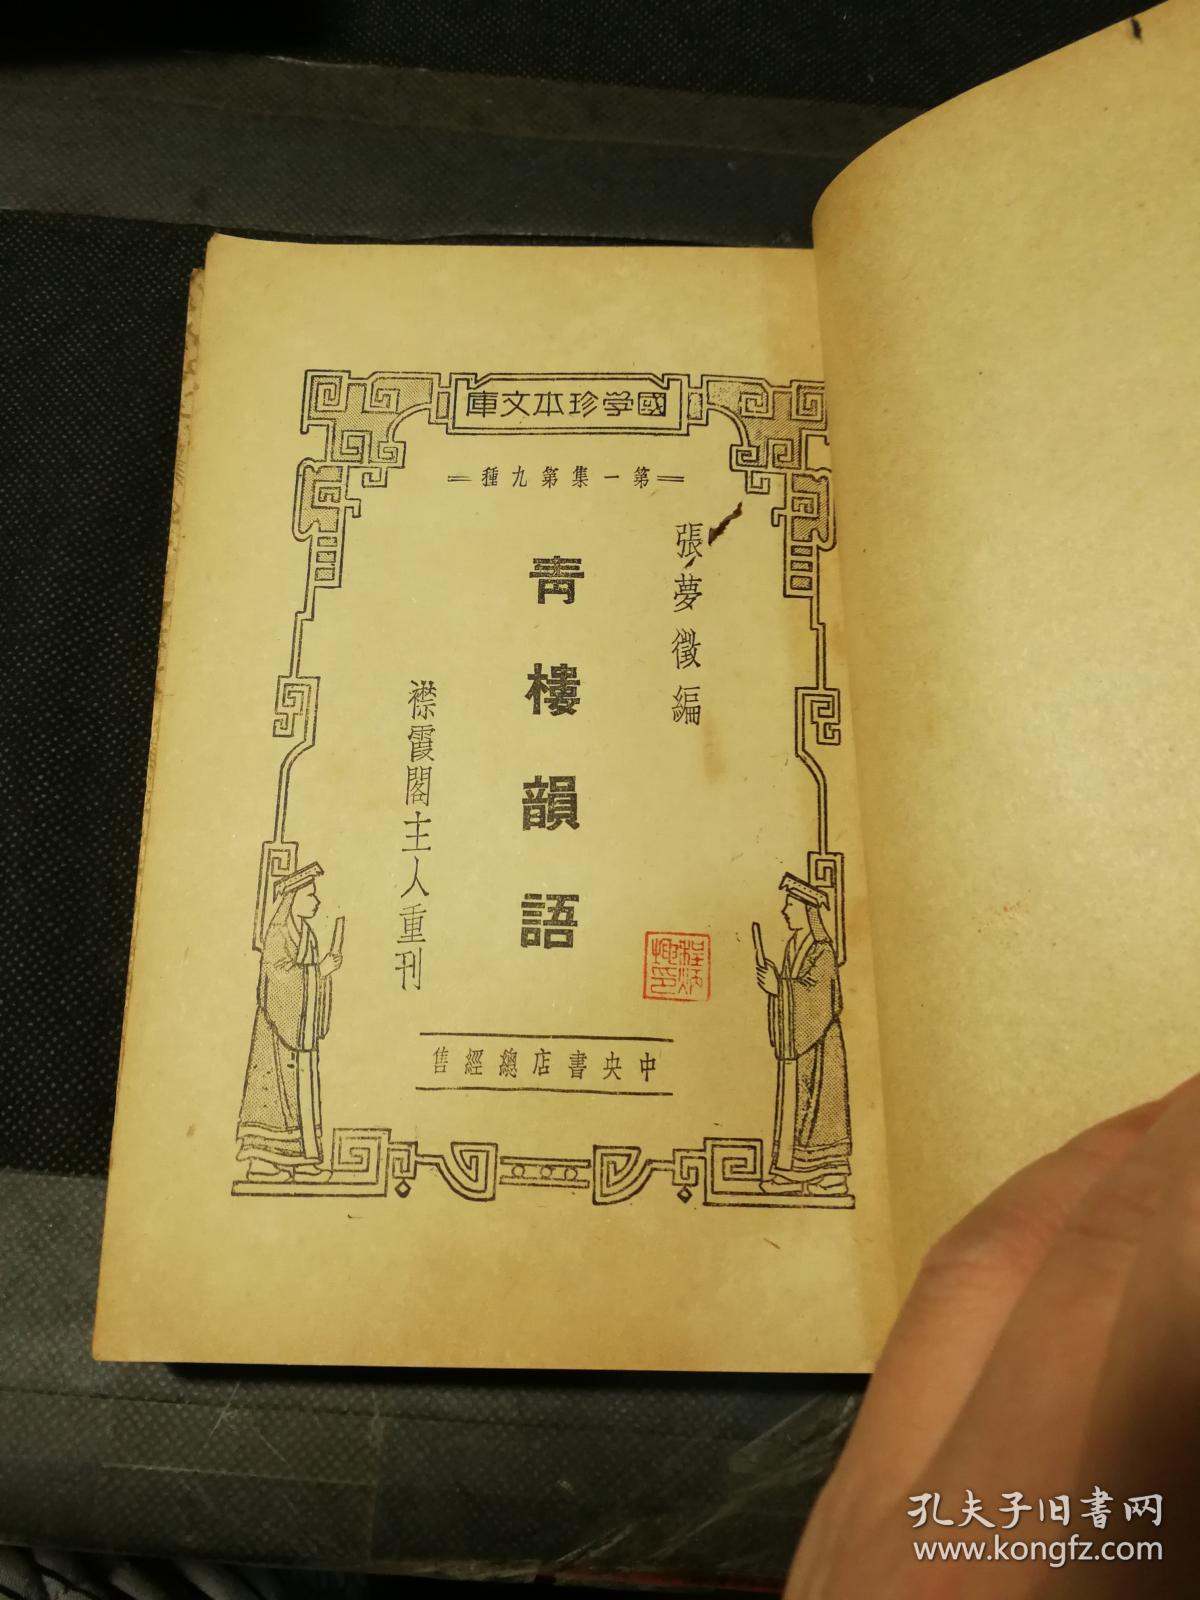 國学珍本文庫
第一集第九種
張夢徵編
青樓韻語
襟霞閣主人重刊
中央書店總經售
孔夫子旧书网
www.kongfz.com